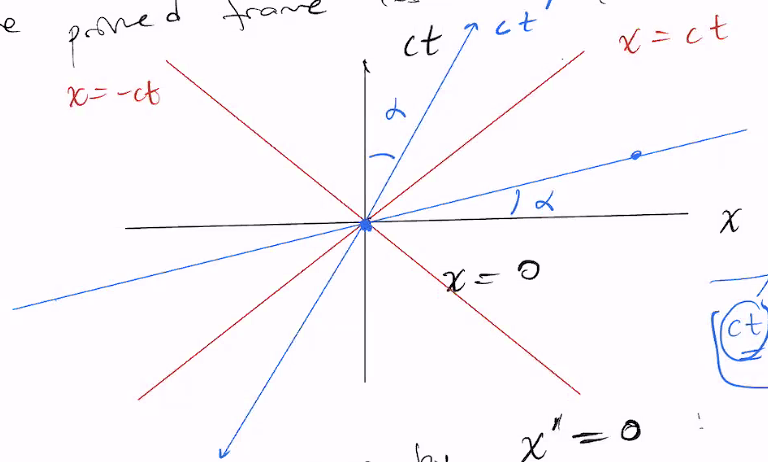 e primed frame
ct
ct'
x = ct
x = -ct
α
α
x
x = 0
ct
by x" = 0